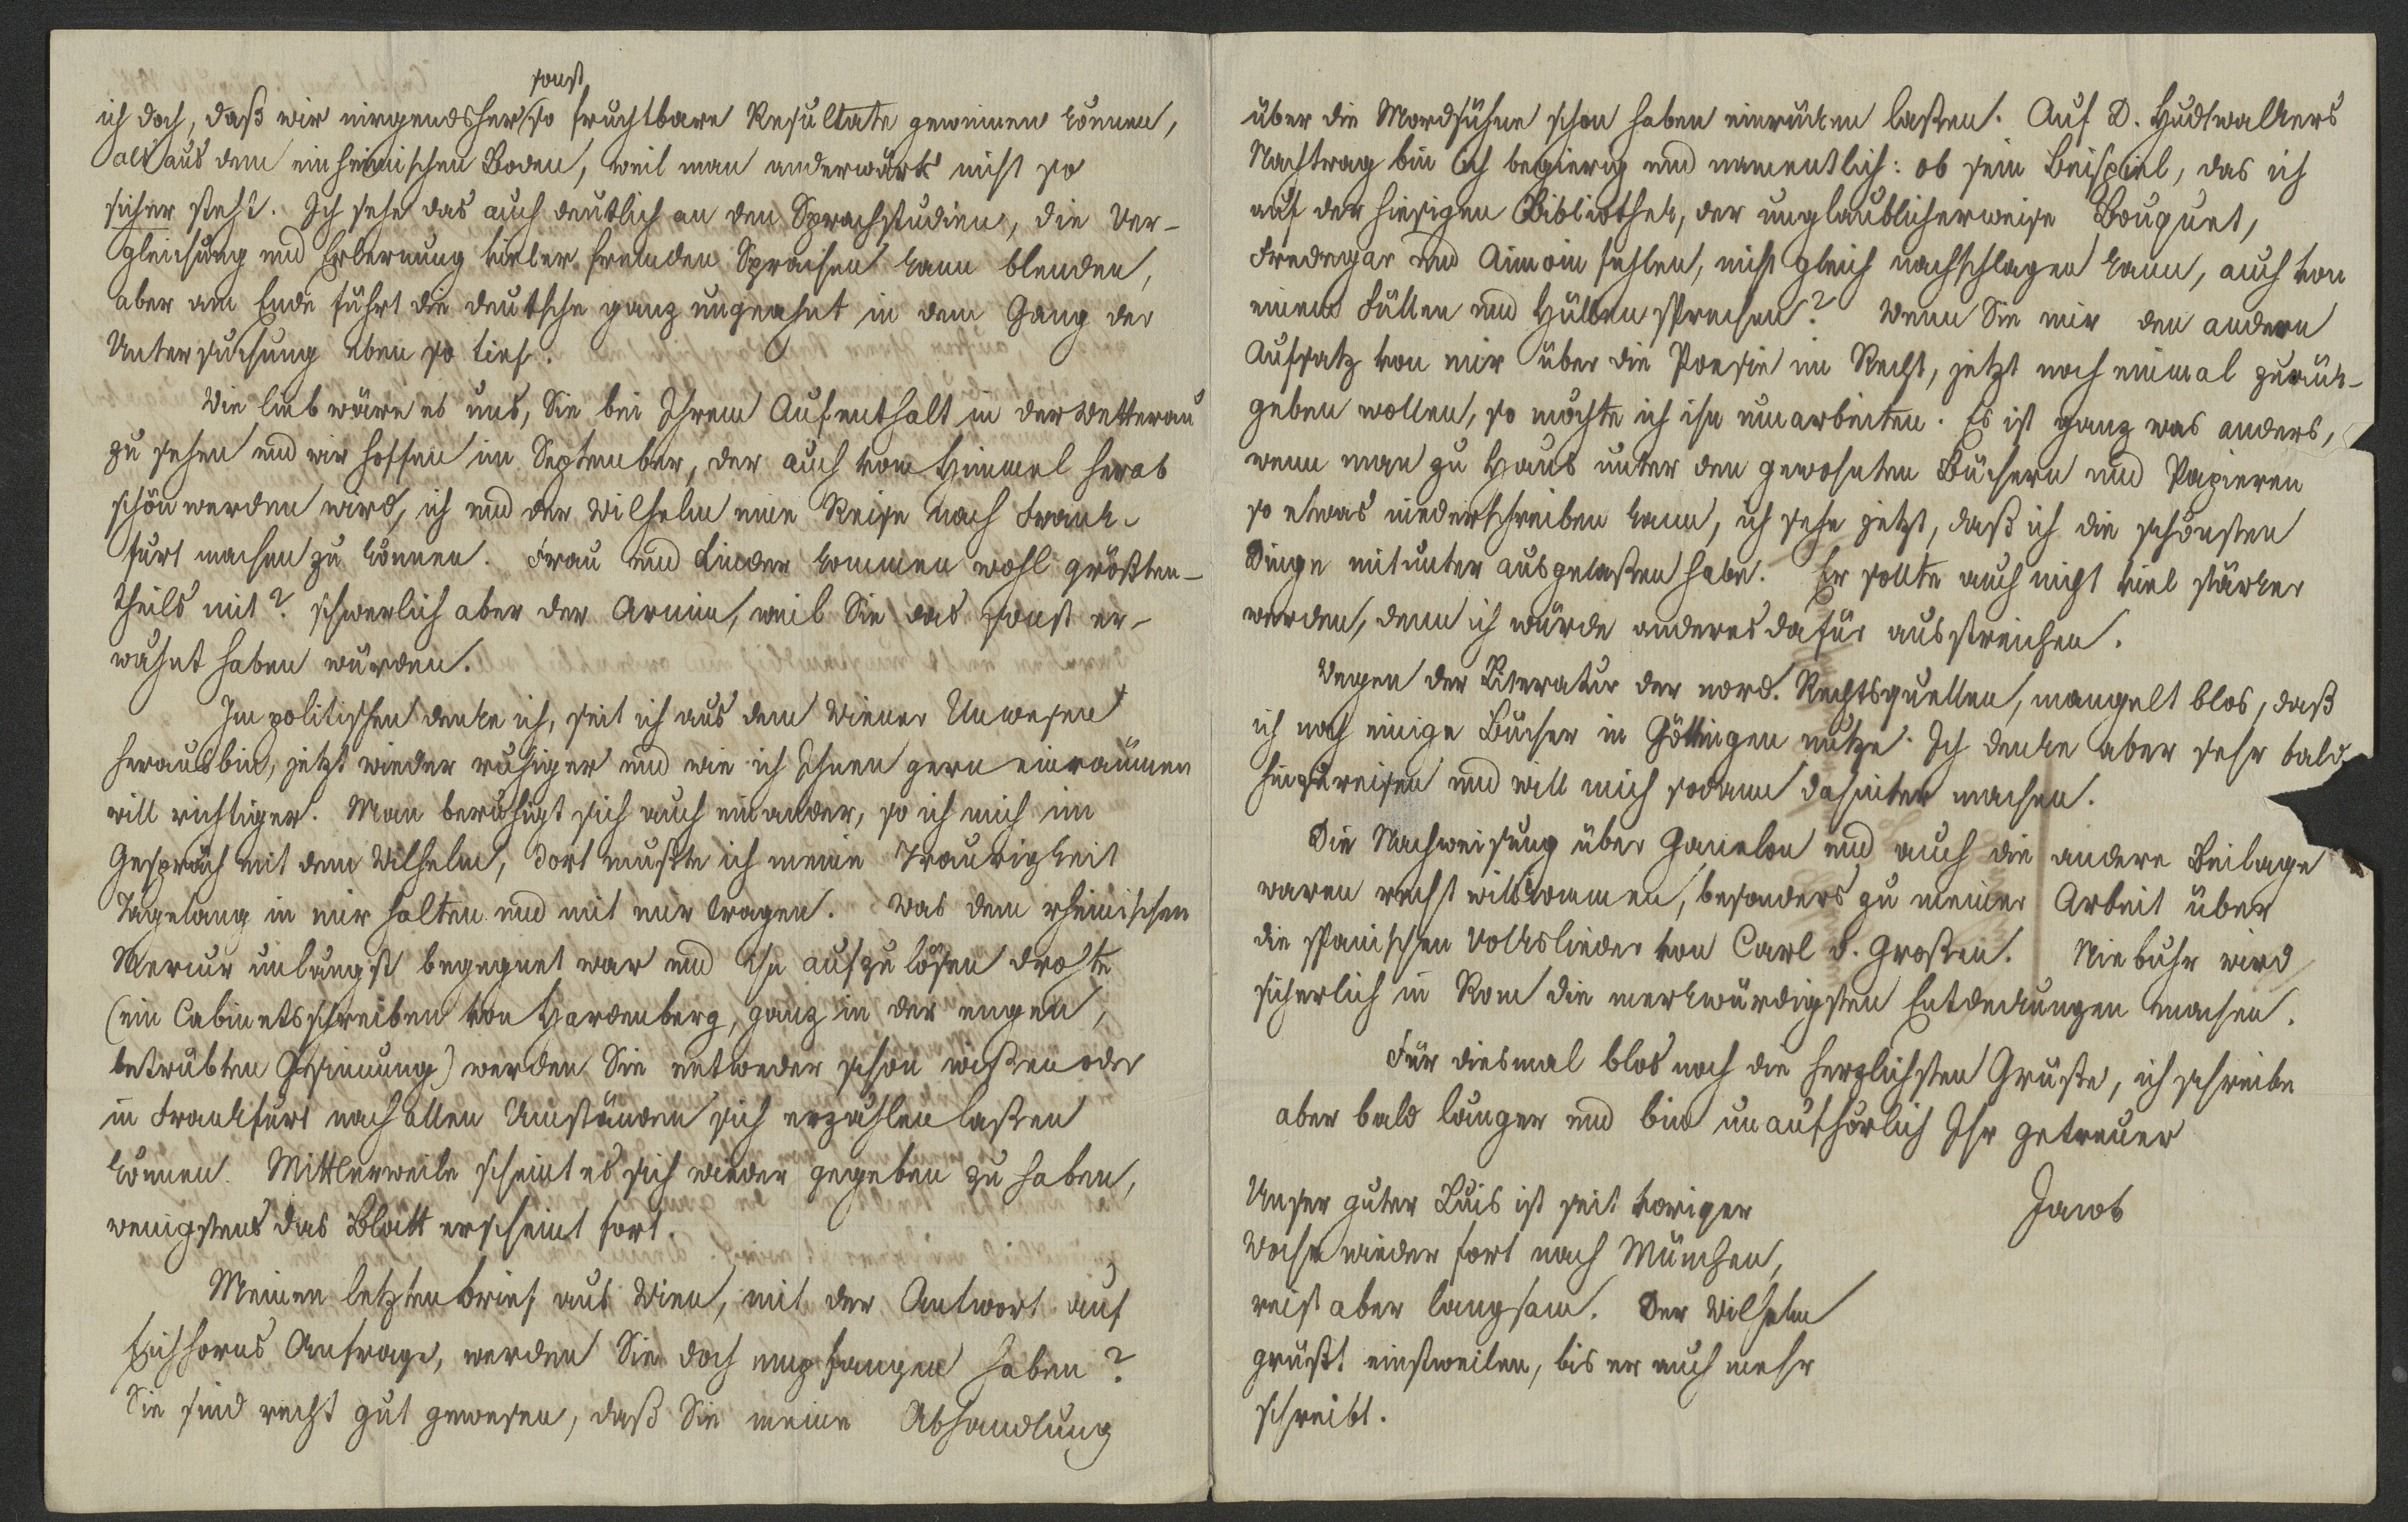 sonst
ich doch, daß wir nirgendsher so fruchtbare Resultate gewinnen können,
als aus dem einheimischen Boden, weil man anderwärts nicht so
sicher steht. Ich sehe das auch deutlich an den Sprachstudien, die Ver-
gleichung und Erlernung vieler fremden Sprachen kann blenden,
aber am Ende führt die deutsche ganz ungeahnt in dem Gang der
Untersuchung eben so tief.
Wie lieb wäre es uns, Sie bei Ihrem Aufenthalt in der Wetterau
zu sehen und wir hoffen im September, der auch vom Himmel herab
schön werden wird, ich und der Wilhelm eine Reise nach Frank-
furt machen zu können. Frau und Kinder kommen wohl größten-
theils mit? schwerlich aber der Armin, weil Sie das sonst er-
wähnt haben würden.
Im politischen denke ich, seit ich aus dem Wiener Unwesen
heraus bin, jetzt wieder ruhiger und wie ich Ihnen gern einräumen
will richtiger. Man beruhigt sich auch einander, so ich mich im
Gespräch mit dem Wilhelm, dort mußte ich meine Traurigkeit
Tagelang in mir halten und mit mir tragen. Was dem rheinischen
Mercur unlängst begegnet war und ihn aufzulösen drohte
(ein Cabinetsschreiben von Hardenberg, ganz in der engen,
betrübten Gesinnung) werden Sie entweder schon wißen oder
in Frankfurt nach allen Umständen sich erzählen laßen
können. Mittlerweile scheint es sich wieder gegeben zu haben,
wenigstens das Blatt erscheint fort.
Meinen letzten brief aus Wien, mit der Antwort auf
Eichhorns Anfrage, werden Sie doch empfangen haben?
Sie sind recht gut gewesen, daß Sie meine Abhandlung
über die Mordsühne schon haben einrücken laßen. Auf D. Hudtwalkers
Nachtrag bin ich begierig und namentlich: ob sein Beispiel, das ich
auf der hiesigen Bibliothek, der unglaublicherweise Bouquet,
Fredegar und Aimoin fehlen, nicht gleich nachschlagen kann, auch von
einem Füllen und Hüllen sprechen? Wenn Sie mir den andern
Aufsatz von mir über die Poesie im Recht, jetzt noch einmal zurück-
geben wollen, so möchte ich ihn umarbeiten. Es ist ganz was anders,
wenn man zu Haus unter den gewohnten Büchern und Papieren
so etwas niederschreiben kann, ich sehe jetzt, daß ich die schönsten
Dinge mitunter ausgelaßen habe. Er sollte auch nicht viel stärker
werden, denn ich würde anderes dafür ausstreichen.
Wegen der Literatur der nord. Rechtsquellen, mangelt blos, daß
ich noch einige Bücher in Göttingen nutze. Ich denke aber sehr bald
hinzureisen und will mich sodann dahinter machen.
Die Nachweisung über Ganelon und auch die andere Beilage
waren recht willkommen, besonders zu meiner Arbeit über
die spanischen Volkslieder von Carl d. Großen. Niebuhr wird
sicherlich in Rom die merkwürdigsten Entdeckungen machen.
Für diesmal blos noch die herzlichsten Grüße, ich schreibe
aber bald länger und bin unaufhörlich Ihr getreuer
Jacob
Unser guter Luis ist seit voriger
Woche wieder fort nach München,
reist aber langsam. Der Wilhelm
grüßt einstweilen, bis er auch mehr
schreibt.